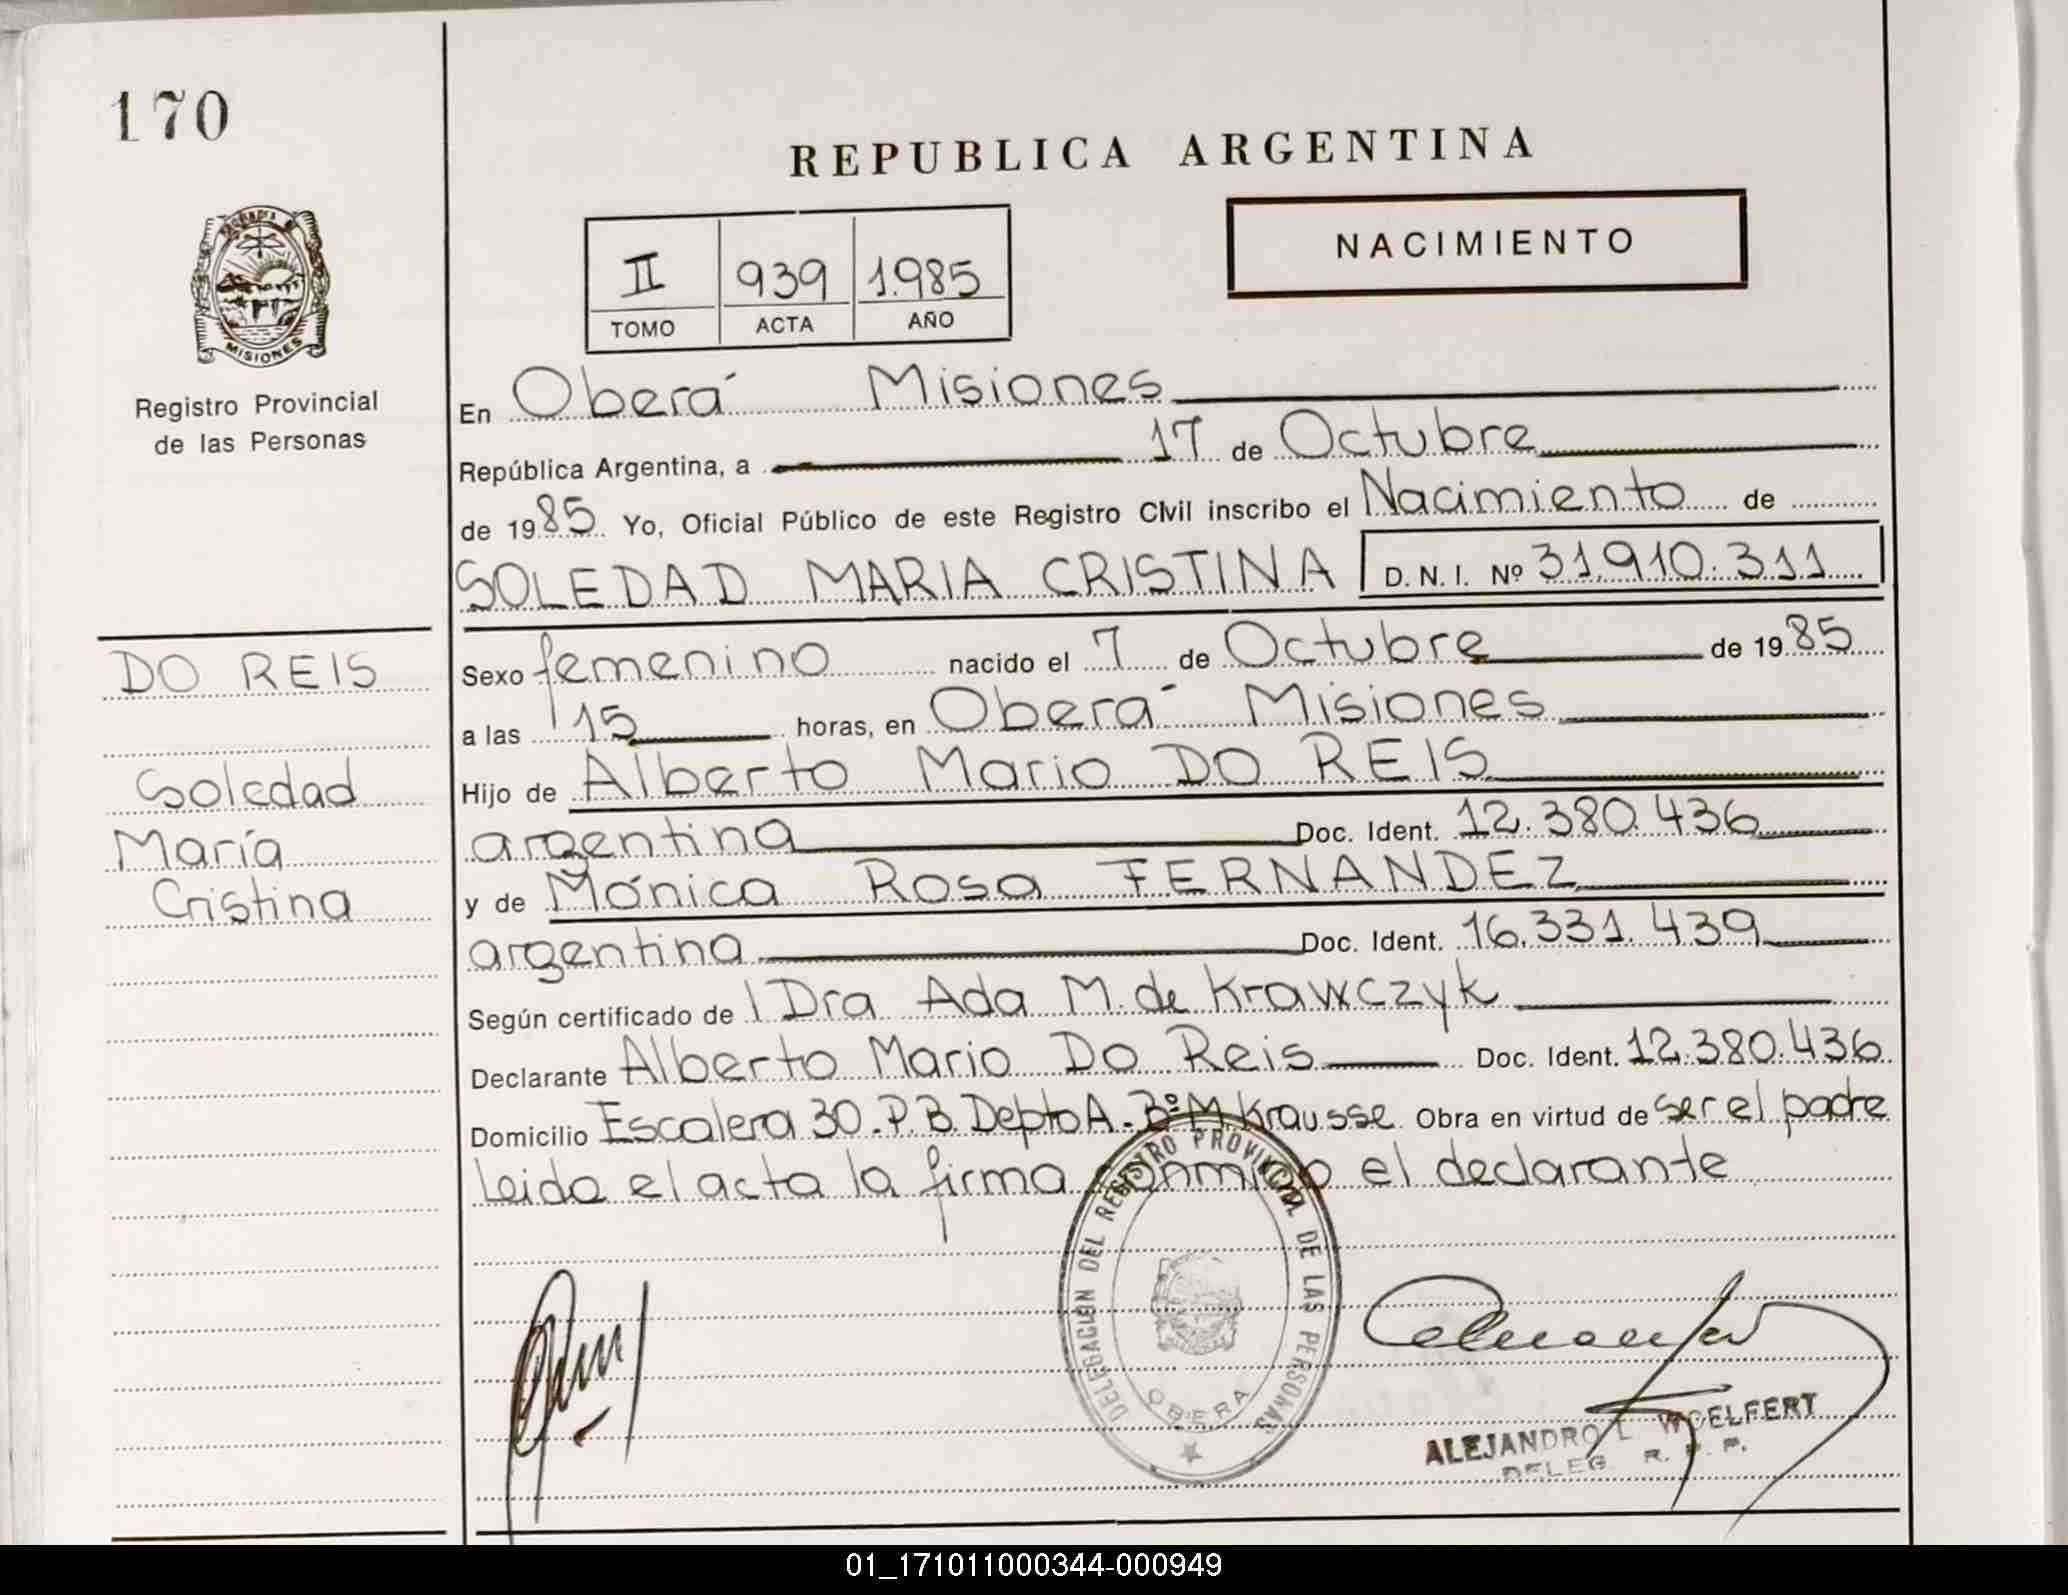 170
REPUBLICA ARGENTINA
NACIMIENTO
II 939 1.985
TOMO ACTA AÑO
MISIONES
Registro Provincial
de las Personas
En Oberá Misiones
República Argentina, a 17 de Octubre
de 1985 Yo, Oficial Público de este Registro Civil inscribo el Nacimiento de
SOLEDAD MARIA CRISTINA D. N. I. Nº 31.910.311
DO REIS
Soledad
María
Cristina
Sexo femenino nacido el 7 de Octubre de 1985
a las 15 horas, en Oberá Misiones
Hijo de Alberto Mario DO REIS
argentina Doc. Ident. 12.380.436
y de Mónica Rosa FERNANDEZ
argentina Doc. Ident. 16.331.439
Según certificado de Dra Ada M. de Krawczyk
Declarante Alberto Mario Do Reis Doc. Ident. 12.380.436
Domicilio Escalera 30.P.B. Depto A. Bº M. Krausse Obra en virtud de ser el padre
Leida el acta la firma conmigo el declarante
DELEGACION DEL REGISTRO PROVINCIAL DE LAS PERSONAS
OBERA
ALEJANDRO L WOELFERT
DELEG. R. P. P.
01_171011000344-000949